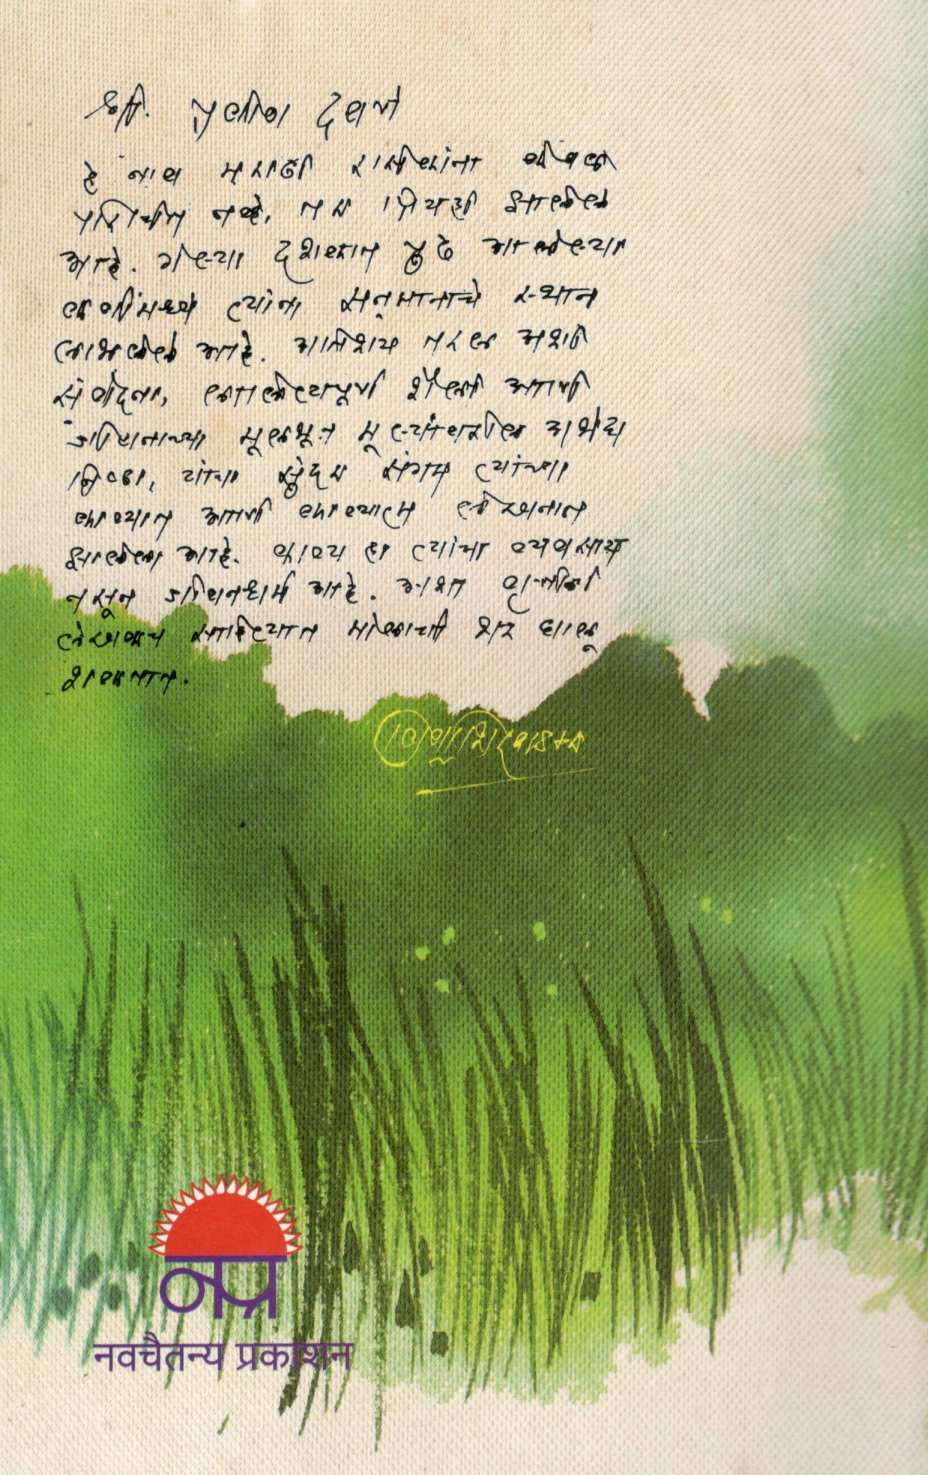 श्री. प्रवीण दवणे
हे नाव मराठी रसिकांना केवळ
परिचित नव्हे, तर प्रियही झालेले
आहे. गेल्या दशकात पुढे आलेल्या
कवींमध्ये त्यांना सन्मानाचे स्थान
लाभलेले आहे. अतिशय तरल अशी
संवेदना, लालित्यपूर्ण शैली आणि
जीवनाच्या मूलभूत मूल्यांवरील अभंग
निष्ठा, यांचा सुंदर संगम त्यांच्या
काव्यात आणि काव्यात्म लेखनात
झालेला आहे. काव्य हा त्यांचा व्यवसाय
नसून जीवनधर्म आहे.
लेखन साहित्यात मोलाची भर घालू
शकतात.
नप्र
नवचैतन्य प्रकाशन